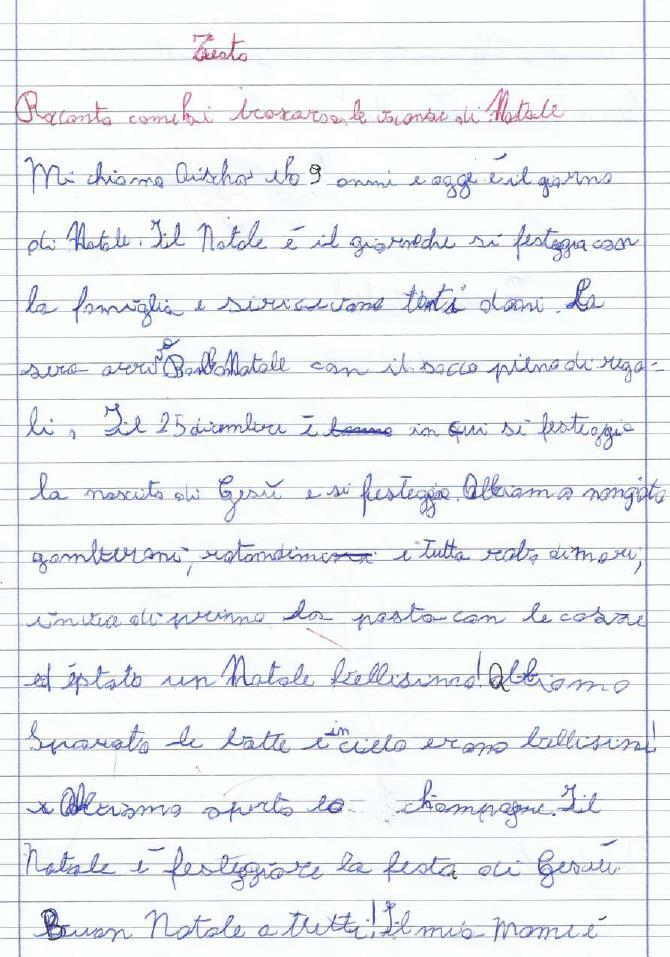 Testo
Racconta come hai trascorso le vacanze di Natale
Mi chiamo Aischa e ho 9 anni e oggi è il giorno
di Natale. Iil Natale è il giorno che si festeggia con
la famiglia e si ricevono tanti doni. La
sera arriva Babbo Natale con il sacco pieno di rega-
li, Iil 25 dicembre è in qui si festeggia
la nascita di Gesù e si festeggia. Abbiamo mangiato
gamberoni, e tutta roba di mari,
invece di primo la pasta con le cozze
ed è stato un Natale bellissimo! abbiamo
sparato le batte e in cielo erano bellisimi!
Abbiamo aperto lo champagne. Iil
Natale è festeggiare la festa di Gesù.
Buon Natale a tutti! Il mio nome è